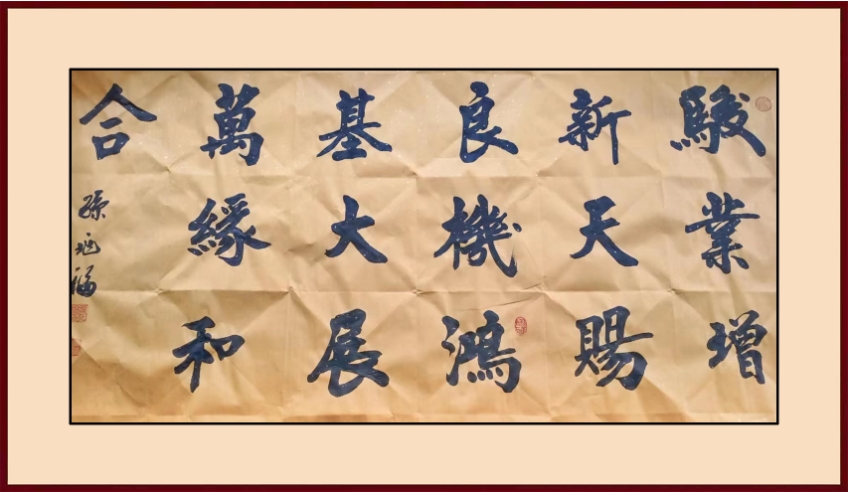 駿業增
新天賜
良機鴻
基大展
萬緣和
合
孫兆福